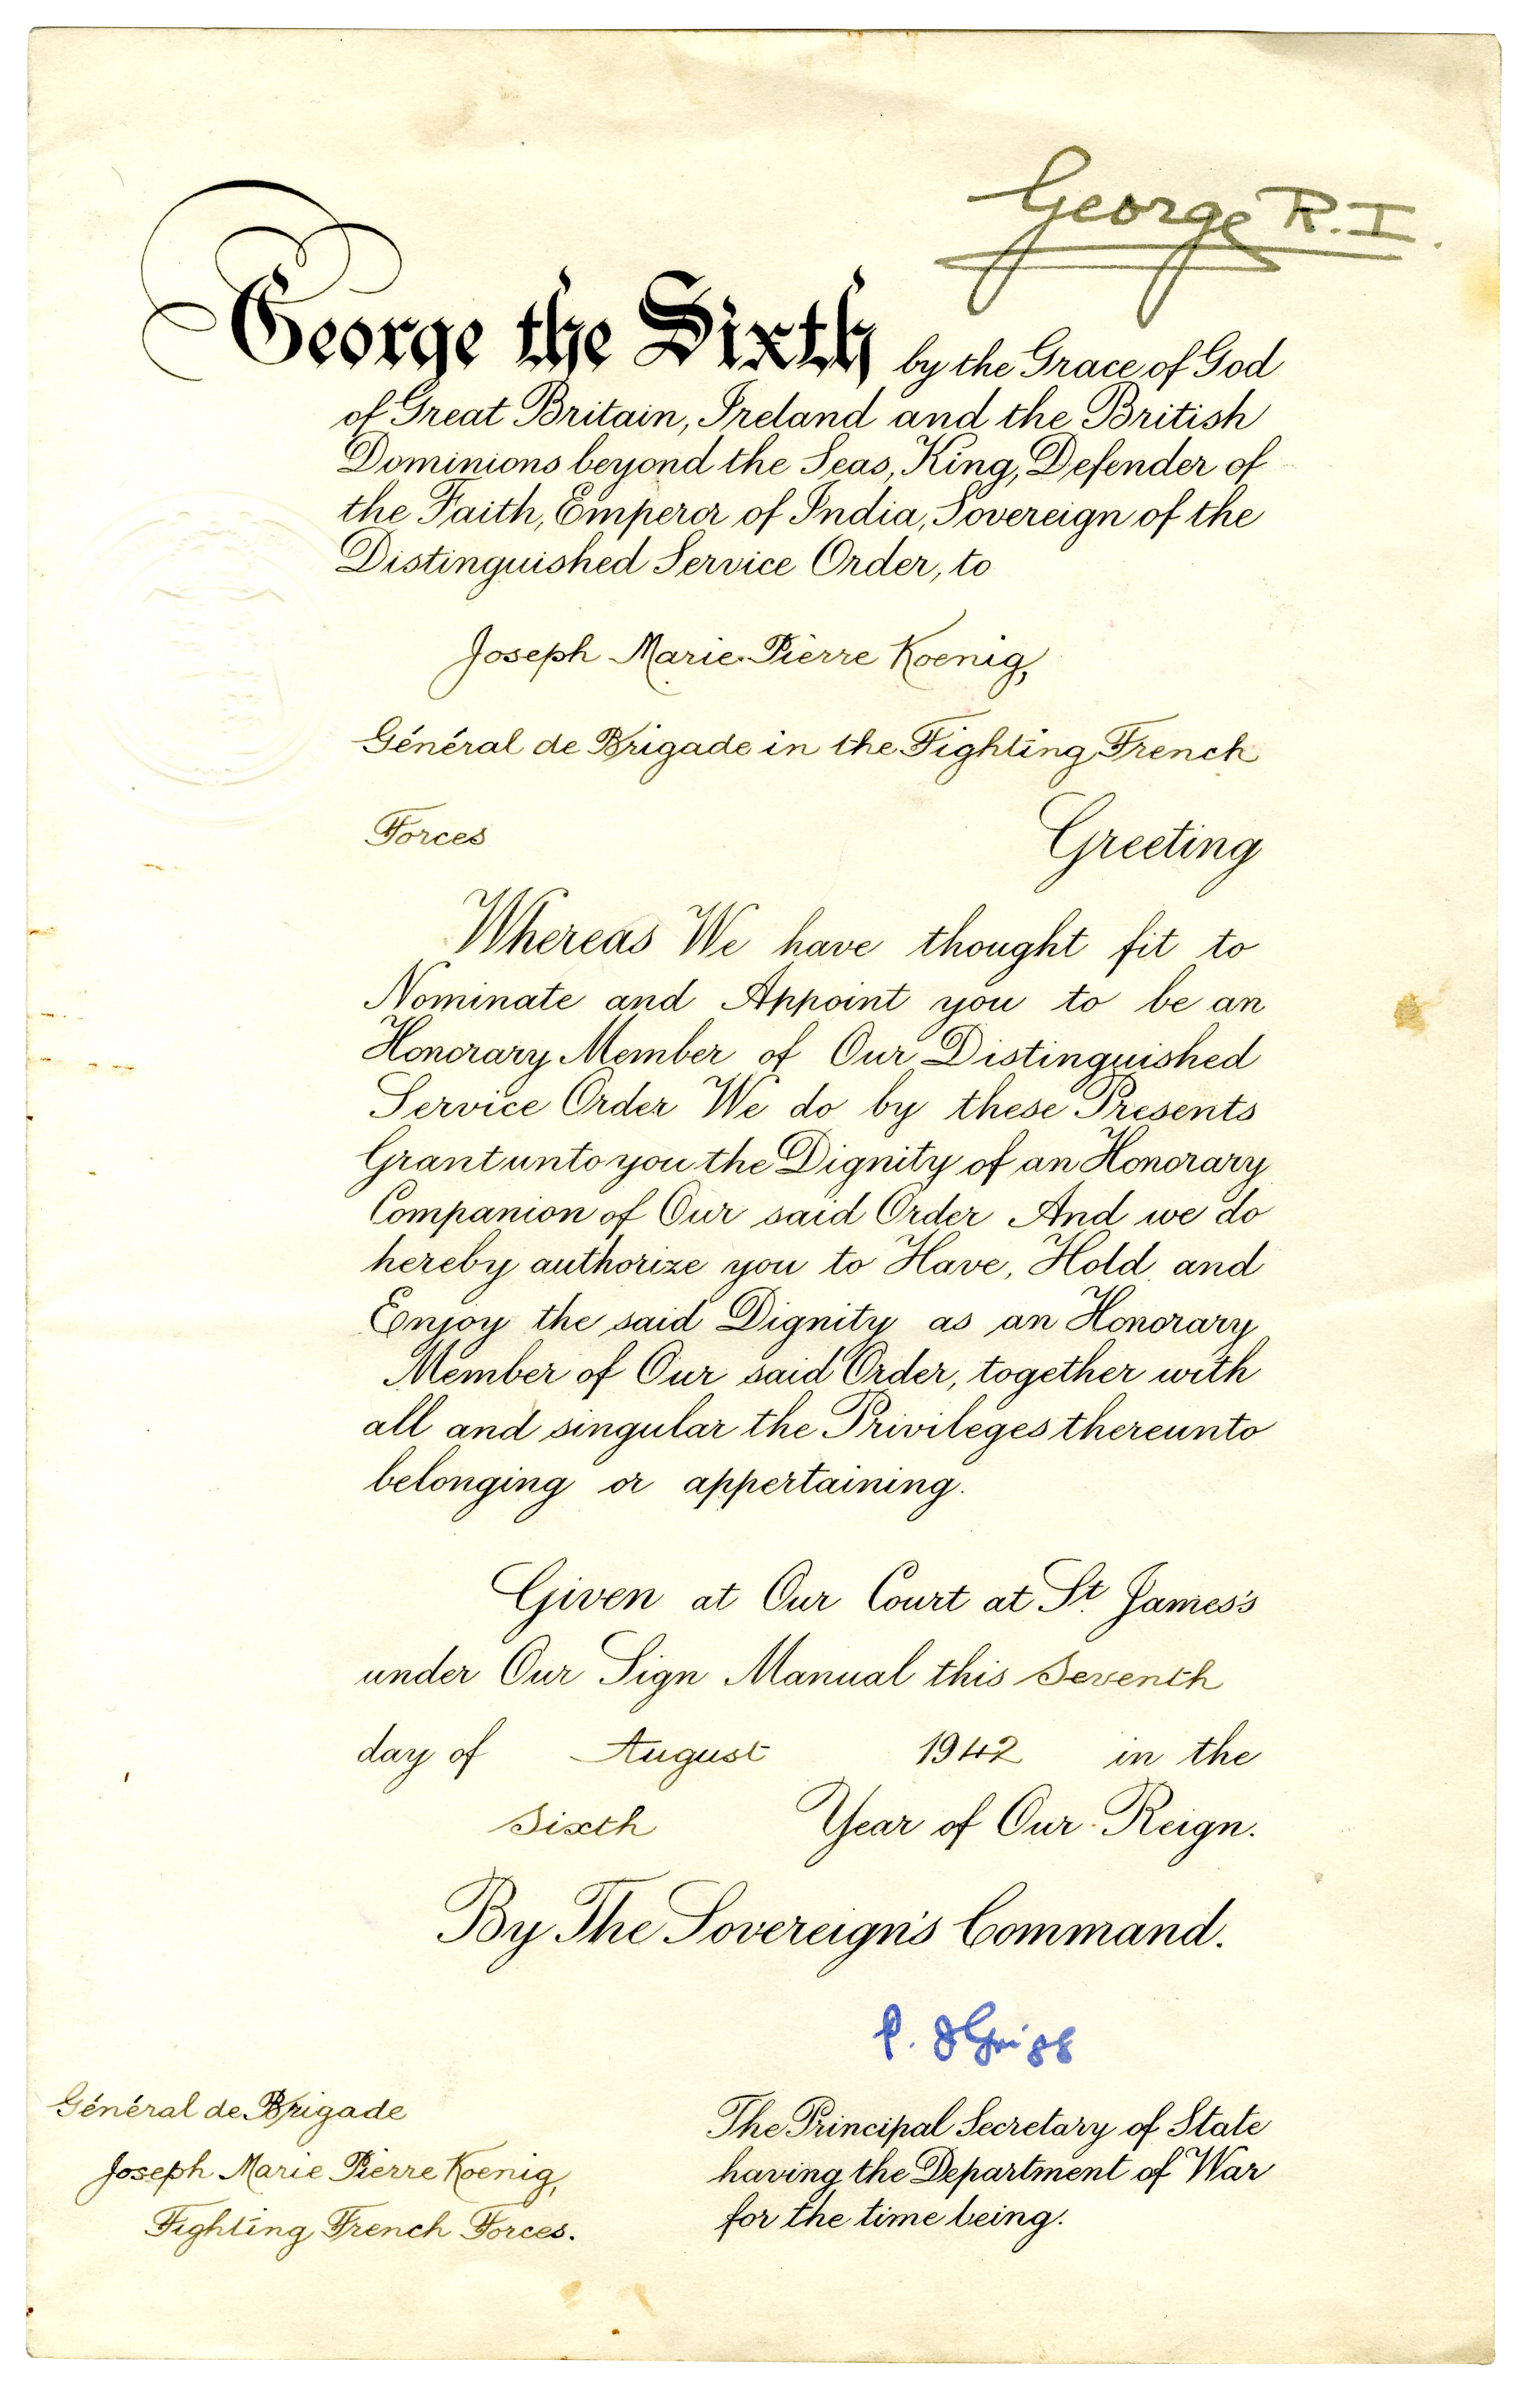 George R.I.
George the Sixth by the Grace of God
of Great Britain, Ireland and the British
Dominions beyond the Seas, King, Defender of
the Faith, Emperor of India, Sovereign of the
Distinguished Service Order, to
Joseph Marie Pierre Koenig,
Général de Brigade in the Fighting French
Forces Greeting
Whereas We have thought fit to
Nominate and Appoint you to be an
Honorary Member of Our Distinguished
Service Order We do by these Presents
Grant unto you the Dignity of an Honorary
Companion of Our said Order And we do
hereby authorize you to Have, Hold and
Enjoy the said Dignity as an Honorary
Member of Our said Order, together with
all and singular the Privileges thereunto
belonging or appertaining.
Given at Our Court at St. James's
under Our Sign Manual this Seventh
day of August 1942 in the
Sixth Year of Our Reign.
By The Sovereign's Command.
P. J Grigg
Général de Brigade
Joseph Marie Pierre Koenig,
Fighting French Forces.
The Principal Secretary of State
having the Department of War
for the time being.